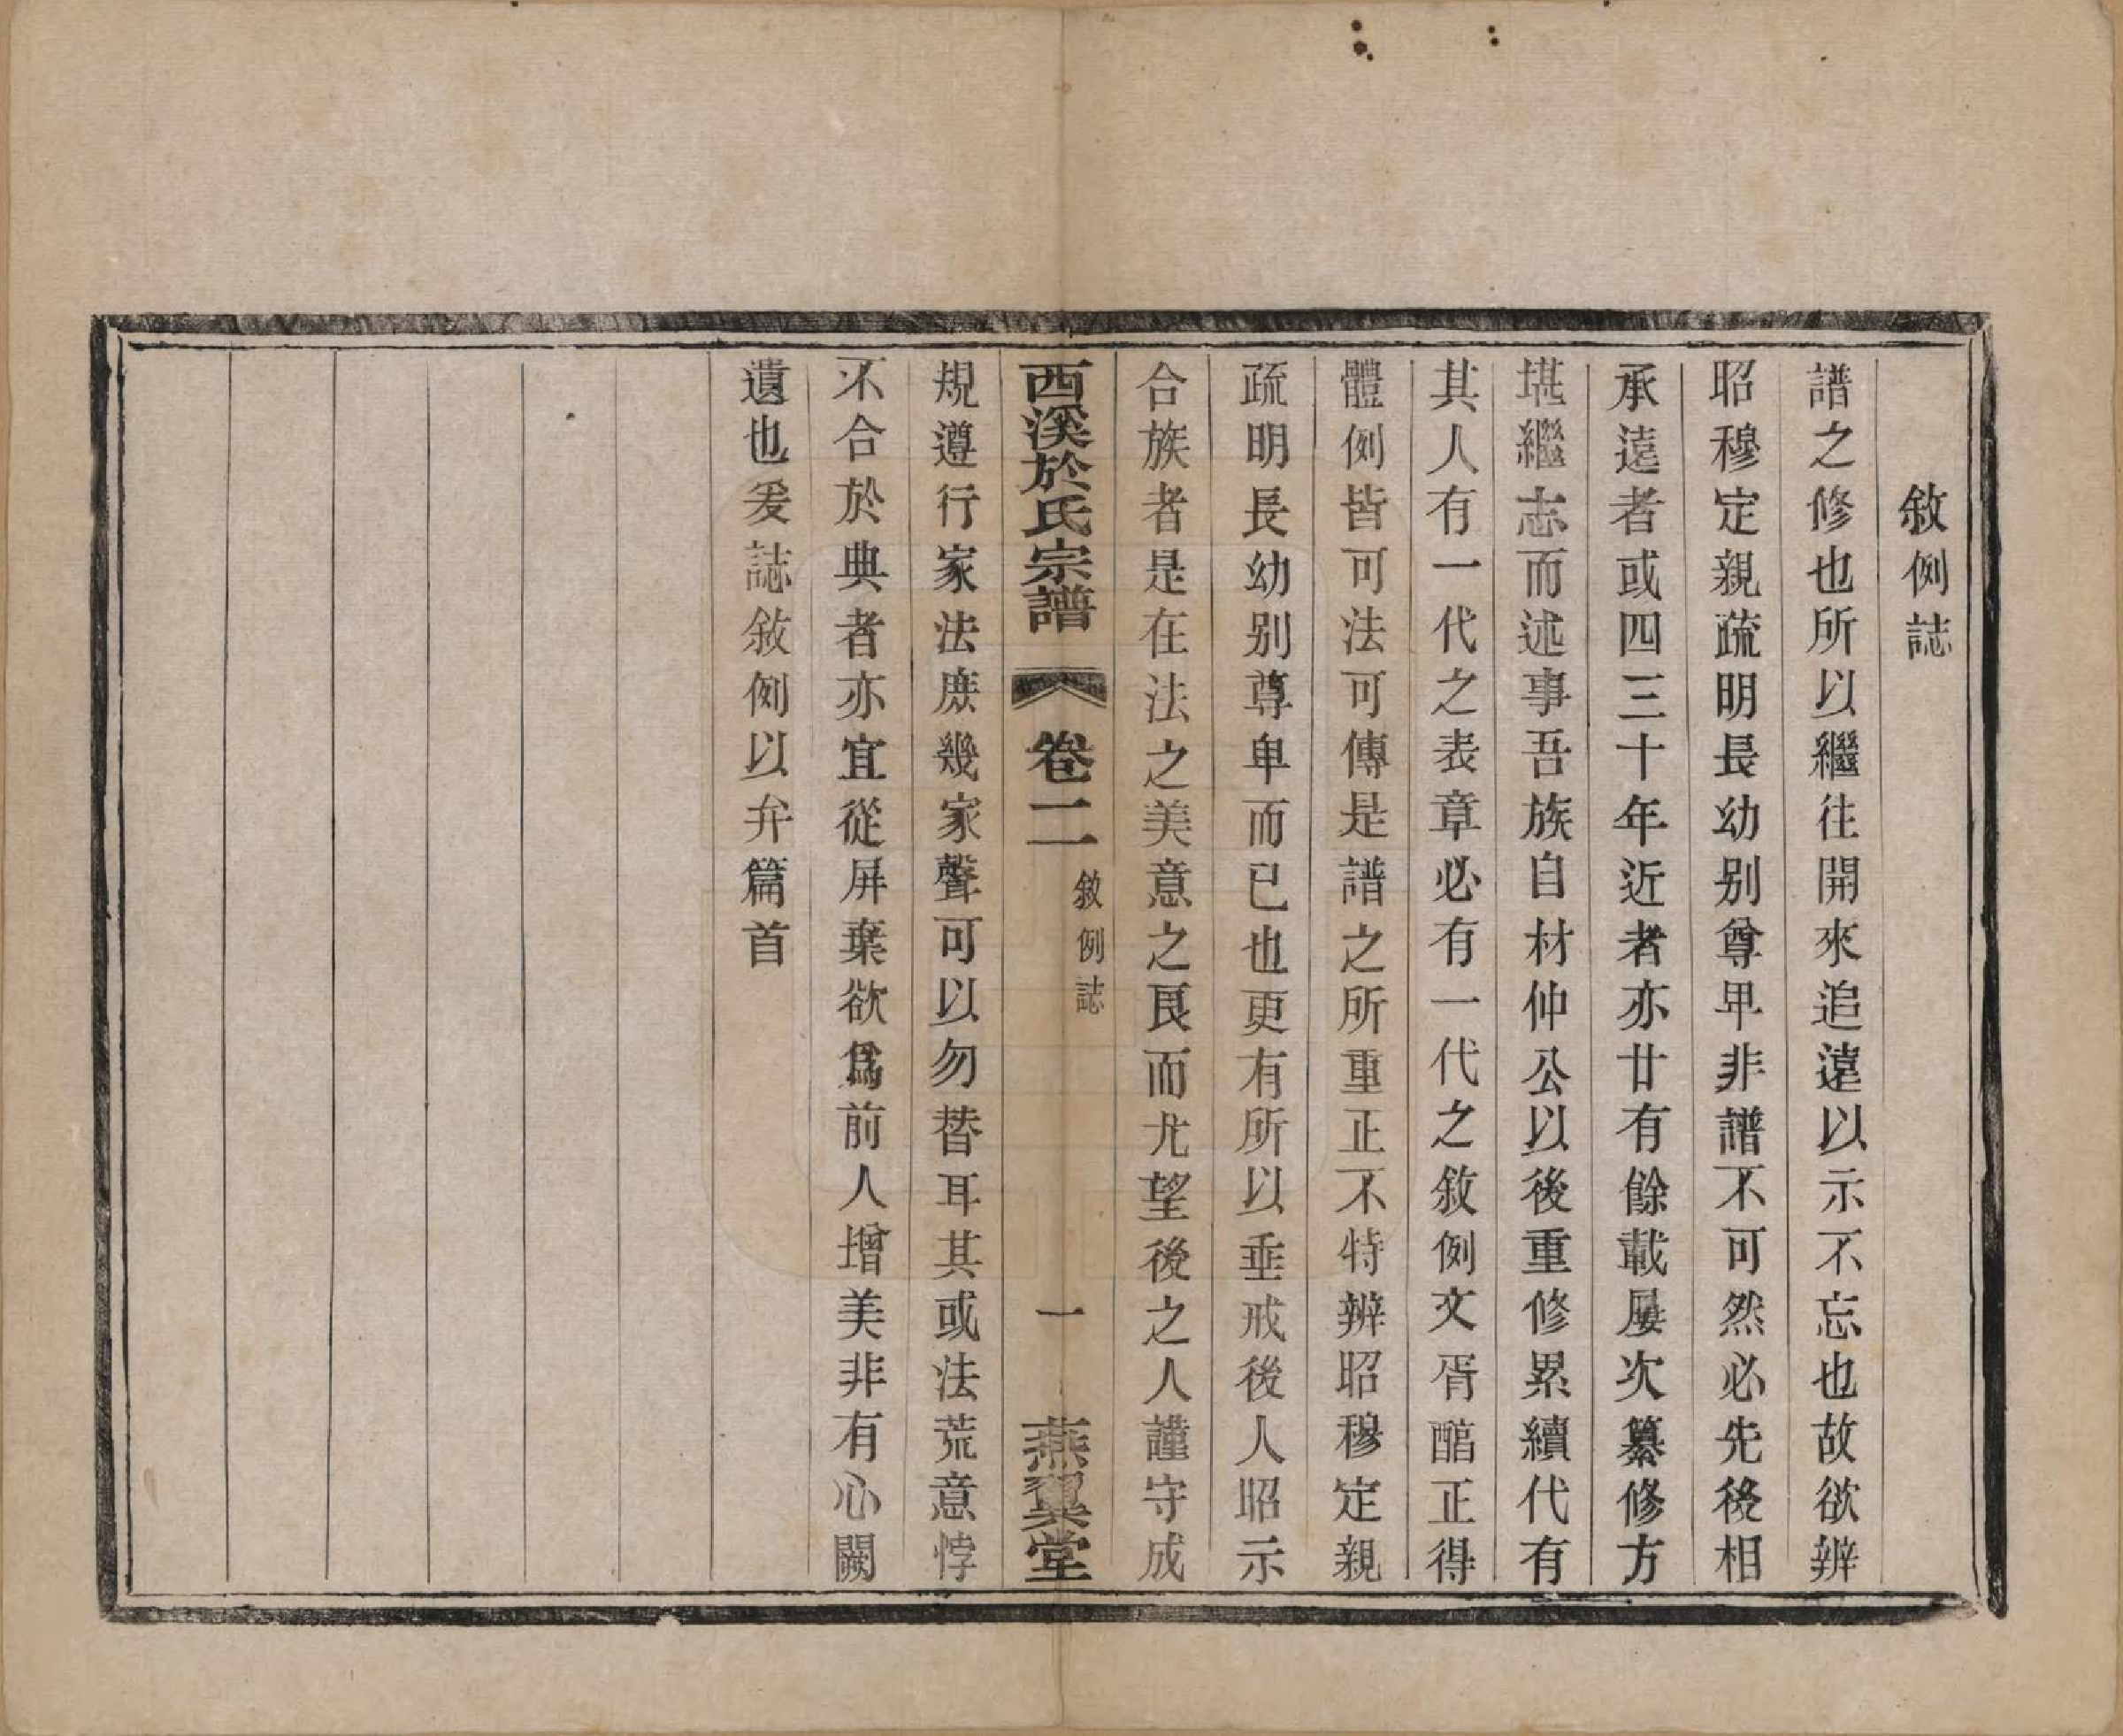 敘例誌
譜之修也所以繼往開來追遠以示不忘也故欲辨
昭穆定親疏明長幼别尊卑非譜不可然必先後相
承遠者或四三十年近者亦廿有餘載屢次纂修方
堪繼志而述事吾族自材仲公以後重修累續代有
其人有一代之表章必有一代之敘例文胥酷正得
體例皆可法可傳是譜之所重正不特辨昭穆定親
疏明長幼别尊卑而已也更有所以垂戒後人昭示
合族者是在法之美意之良而尤望後之人謹守成
西溪於氏宗譜 卷二 敘例誌 一 燕翼堂
規遵行家法庶幾家聲可以勿替耳其或法荒意悖
不合於典者亦宜從屏棄欲為前人增美非有心闕
遺也爰誌敘例以弁篇首